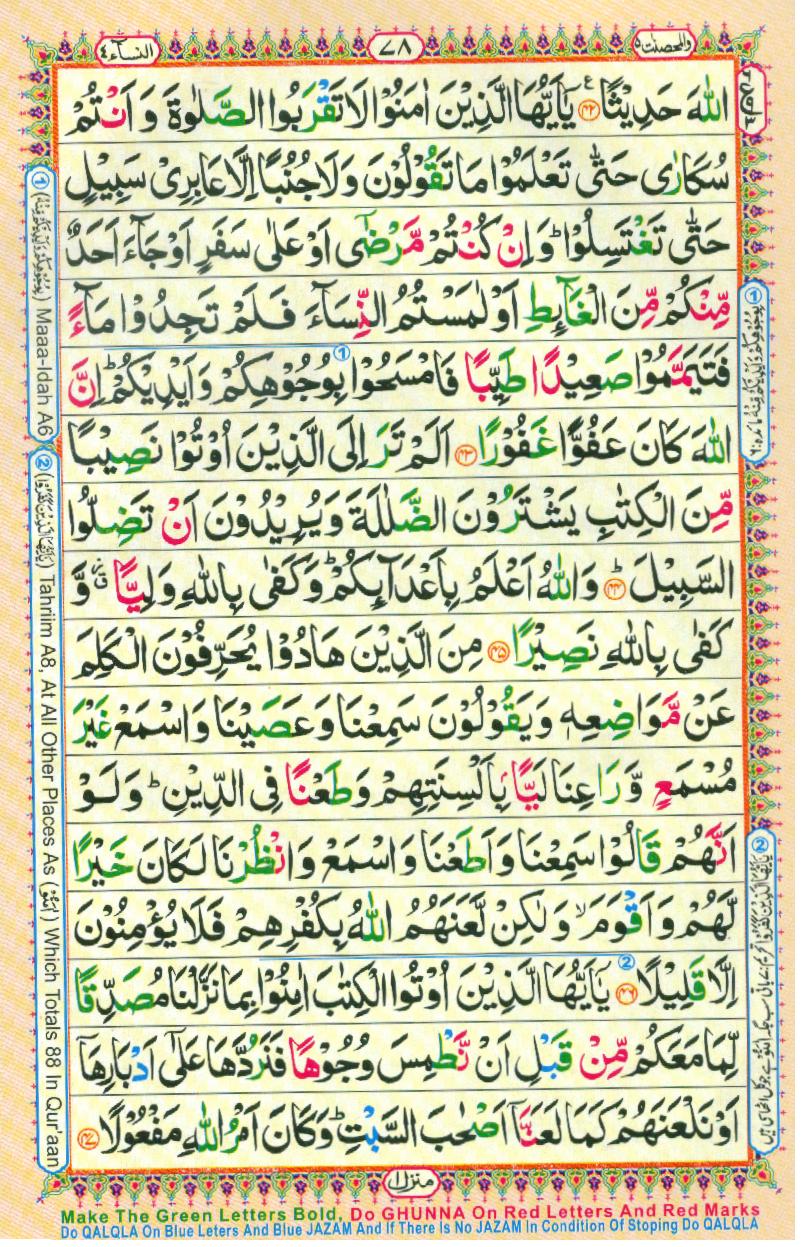 النسآء ٤
٧٨
والمحصنت ٥
اللهَ حَدِيْثًا ﴿۴۲﴾ یٰۤاَیُّهَا الَّذِیْنَ اٰمَنُوْا لَا تَقْرَبُوا الصَّلٰوةَ وَ اَنْتُمْ
سُكَارٰی حَتّٰی تَعْلَمُوْا مَا تَقُوْلُوْنَ وَ لَا جُنُبًا اِلَّا عَابِرِیْ سَبِیْلٍ
حَتّٰی تَغْتَسِلُوْا ؕ وَ اِنْ كُنْتُمْ مَّرْضٰۤی اَوْ عَلٰی سَفَرٍ اَوْ جَآءَ اَحَدٌ
مِّنْكُمْ مِّنَ الْغَآىِٕطِ اَوْ لٰمَسْتُمُ النِّسَآءَ فَلَمْ تَجِدُوْا مَآءً
فَتَیَمَّمُوْا صَعِیْدًا طَیِّبًا فَامْسَحُوْا بِوُجُوْهِكُمْ وَ اَیْدِیْكُمْ ؕ اِنَّ
اللهَ كَانَ عَفُوًّا غَفُوْرًا ﴿۴۳﴾ اَلَمْ تَرَ اِلَی الَّذِیْنَ اُوْتُوْا نَصِیْبًا
مِّنَ الْكِتٰبِ یَشْتَرُوْنَ الضَّلٰلَةَ وَ یُرِیْدُوْنَ اَنْ تَضِلُّوا
السَّبِیْلَ ؕ ﴿۴۴﴾ وَ اللهُ اَعْلَمُ بِاَعْدَآىِٕكُمْ ؕ وَ كَفٰی بِاللهِ وَلِیًّا ٘ۗ وَّ
كَفٰی بِاللهِ نَصِیْرًا ﴿۴۵﴾ مِنَ الَّذِیْنَ هَادُوْا یُحَرِّفُوْنَ الْكَلِمَ
عَنْ مَّوَاضِعِهٖ وَ یَقُوْلُوْنَ سَمِعْنَا وَ عَصَیْنَا وَ اسْمَعْ غَیْرَ
مُسْمَعٍ وَّ رَاعِنَا لَیًّۢا بِاَلْسِنَتِهِمْ وَ طَعْنًا فِی الدِّیْنِ ؕ وَ لَوْ
اَنَّهُمْ قَالُوْا سَمِعْنَا وَ اَطَعْنَا وَ اسْمَعْ وَ انْظُرْنَا لَكَانَ خَیْرًا
لَّهُمْ وَ اَقْوَمَ ۙ وَ لٰكِنْ لَّعَنَهُمُ اللهُ بِكُفْرِهِمْ فَلَا یُؤْمِنُوْنَ
اِلَّا قَلِیْلًا ﴿۴۶﴾ یٰۤاَیُّهَا الَّذِیْنَ اُوْتُوا الْكِتٰبَ اٰمِنُوْا بِمَا نَزَّلْنَا مُصَدِّقًا
لِّمَا مَعَكُمْ مِّنْ قَبْلِ اَنْ نَّطْمِسَ وُجُوْهًا فَنَرُدَّهَا عَلٰۤی اَدْبَارِهَاۤ
اَوْ نَلْعَنَهُمْ كَمَا لَعَنَّاۤ اَصْحٰبَ السَّبْتِ ؕ وَ كَانَ اَمْرُ اللهِ مَفْعُوْلًا ﴿۴۷﴾
منزل ١
① (بِوُجُوْهِكُمْ وَاَيْدِيْكُمْ مِّنْهُ) Maaa-Idah A6
② (یٰۤاَیُّهَا الَّذِیْنَ كَفَرُوْا) Tahriim A8, At All Other Places As (اٰمَنُوْا) Which Totals 88 In Qur'aan
Make The Green Letters Bold, Do GHUNNA On Red Letters And Red Marks
Do QALQLA On Blue Leters And Blue JAZAM And If There Is No JAZAM In Condition Of Stoping Do QALQLA